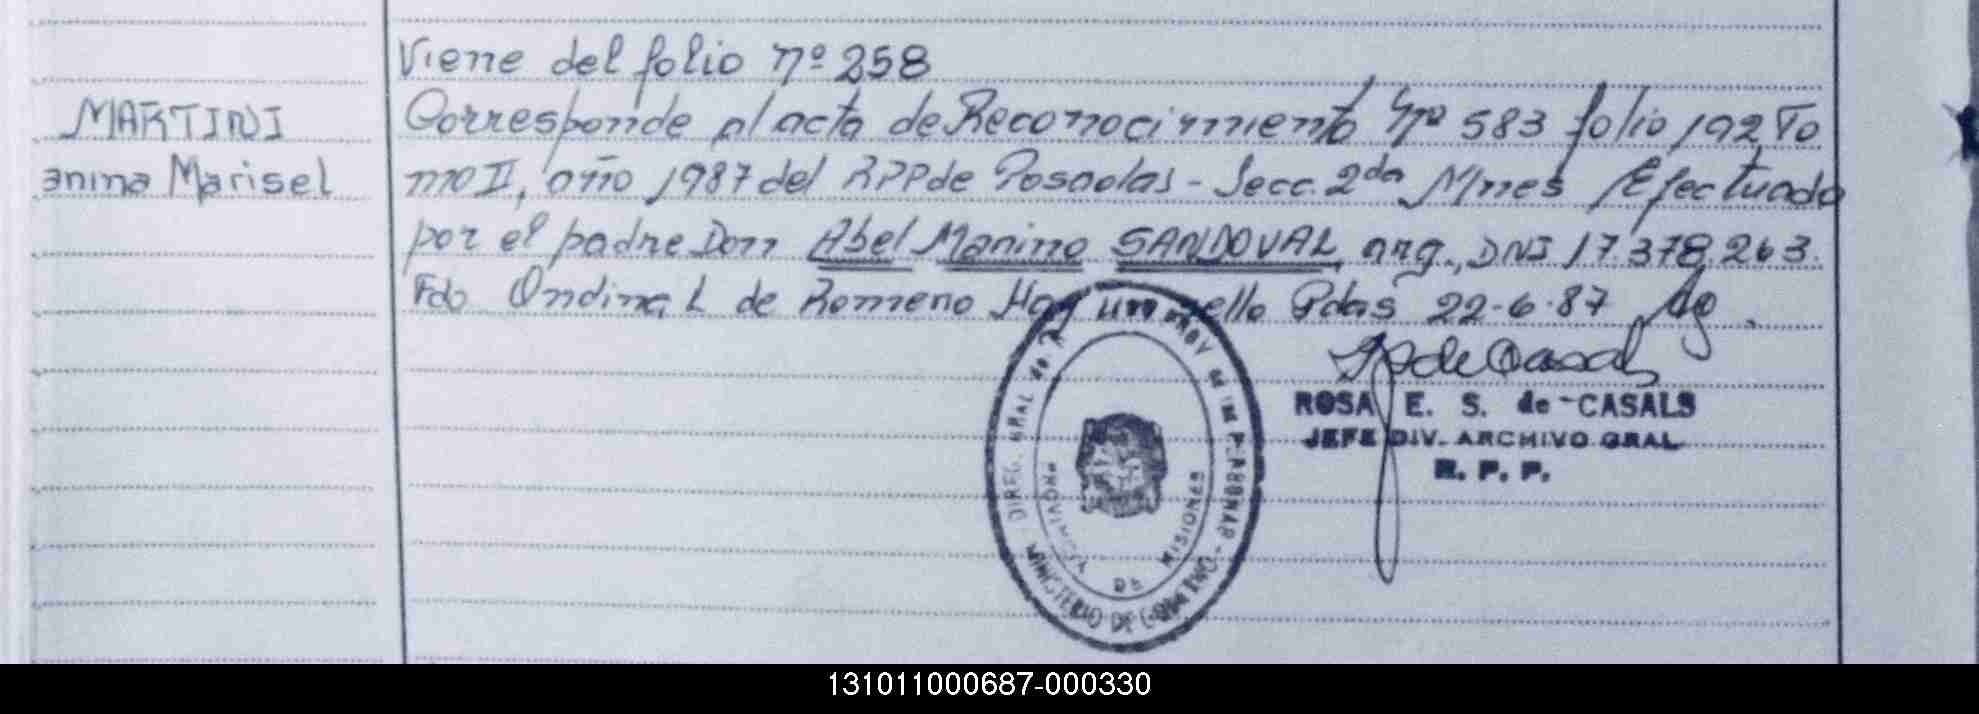 Viene del folio nº 258
MARTINI
anina Marisel
Corresponde al acta de Reconocimiento Nº 583 folio 192 To
mo II, año 1987 del RPP de Posadas - Secc. 2da Mnes Efectuado
por el padre Don Abel Marino SANDOVAL, arg., DNI 17.378.263.
Fdo Ondina L de Romero Hay un sello Pdas 22-6-87
de Casals
ROSA E. S. de CASALS
JEFE DIV. ARCHIVO GRAL
R. P. P.
DIREG. GRAL
MINISTERIO DE GOBIERNO
PROVINCIA DE MISIONES
131011000687-000330